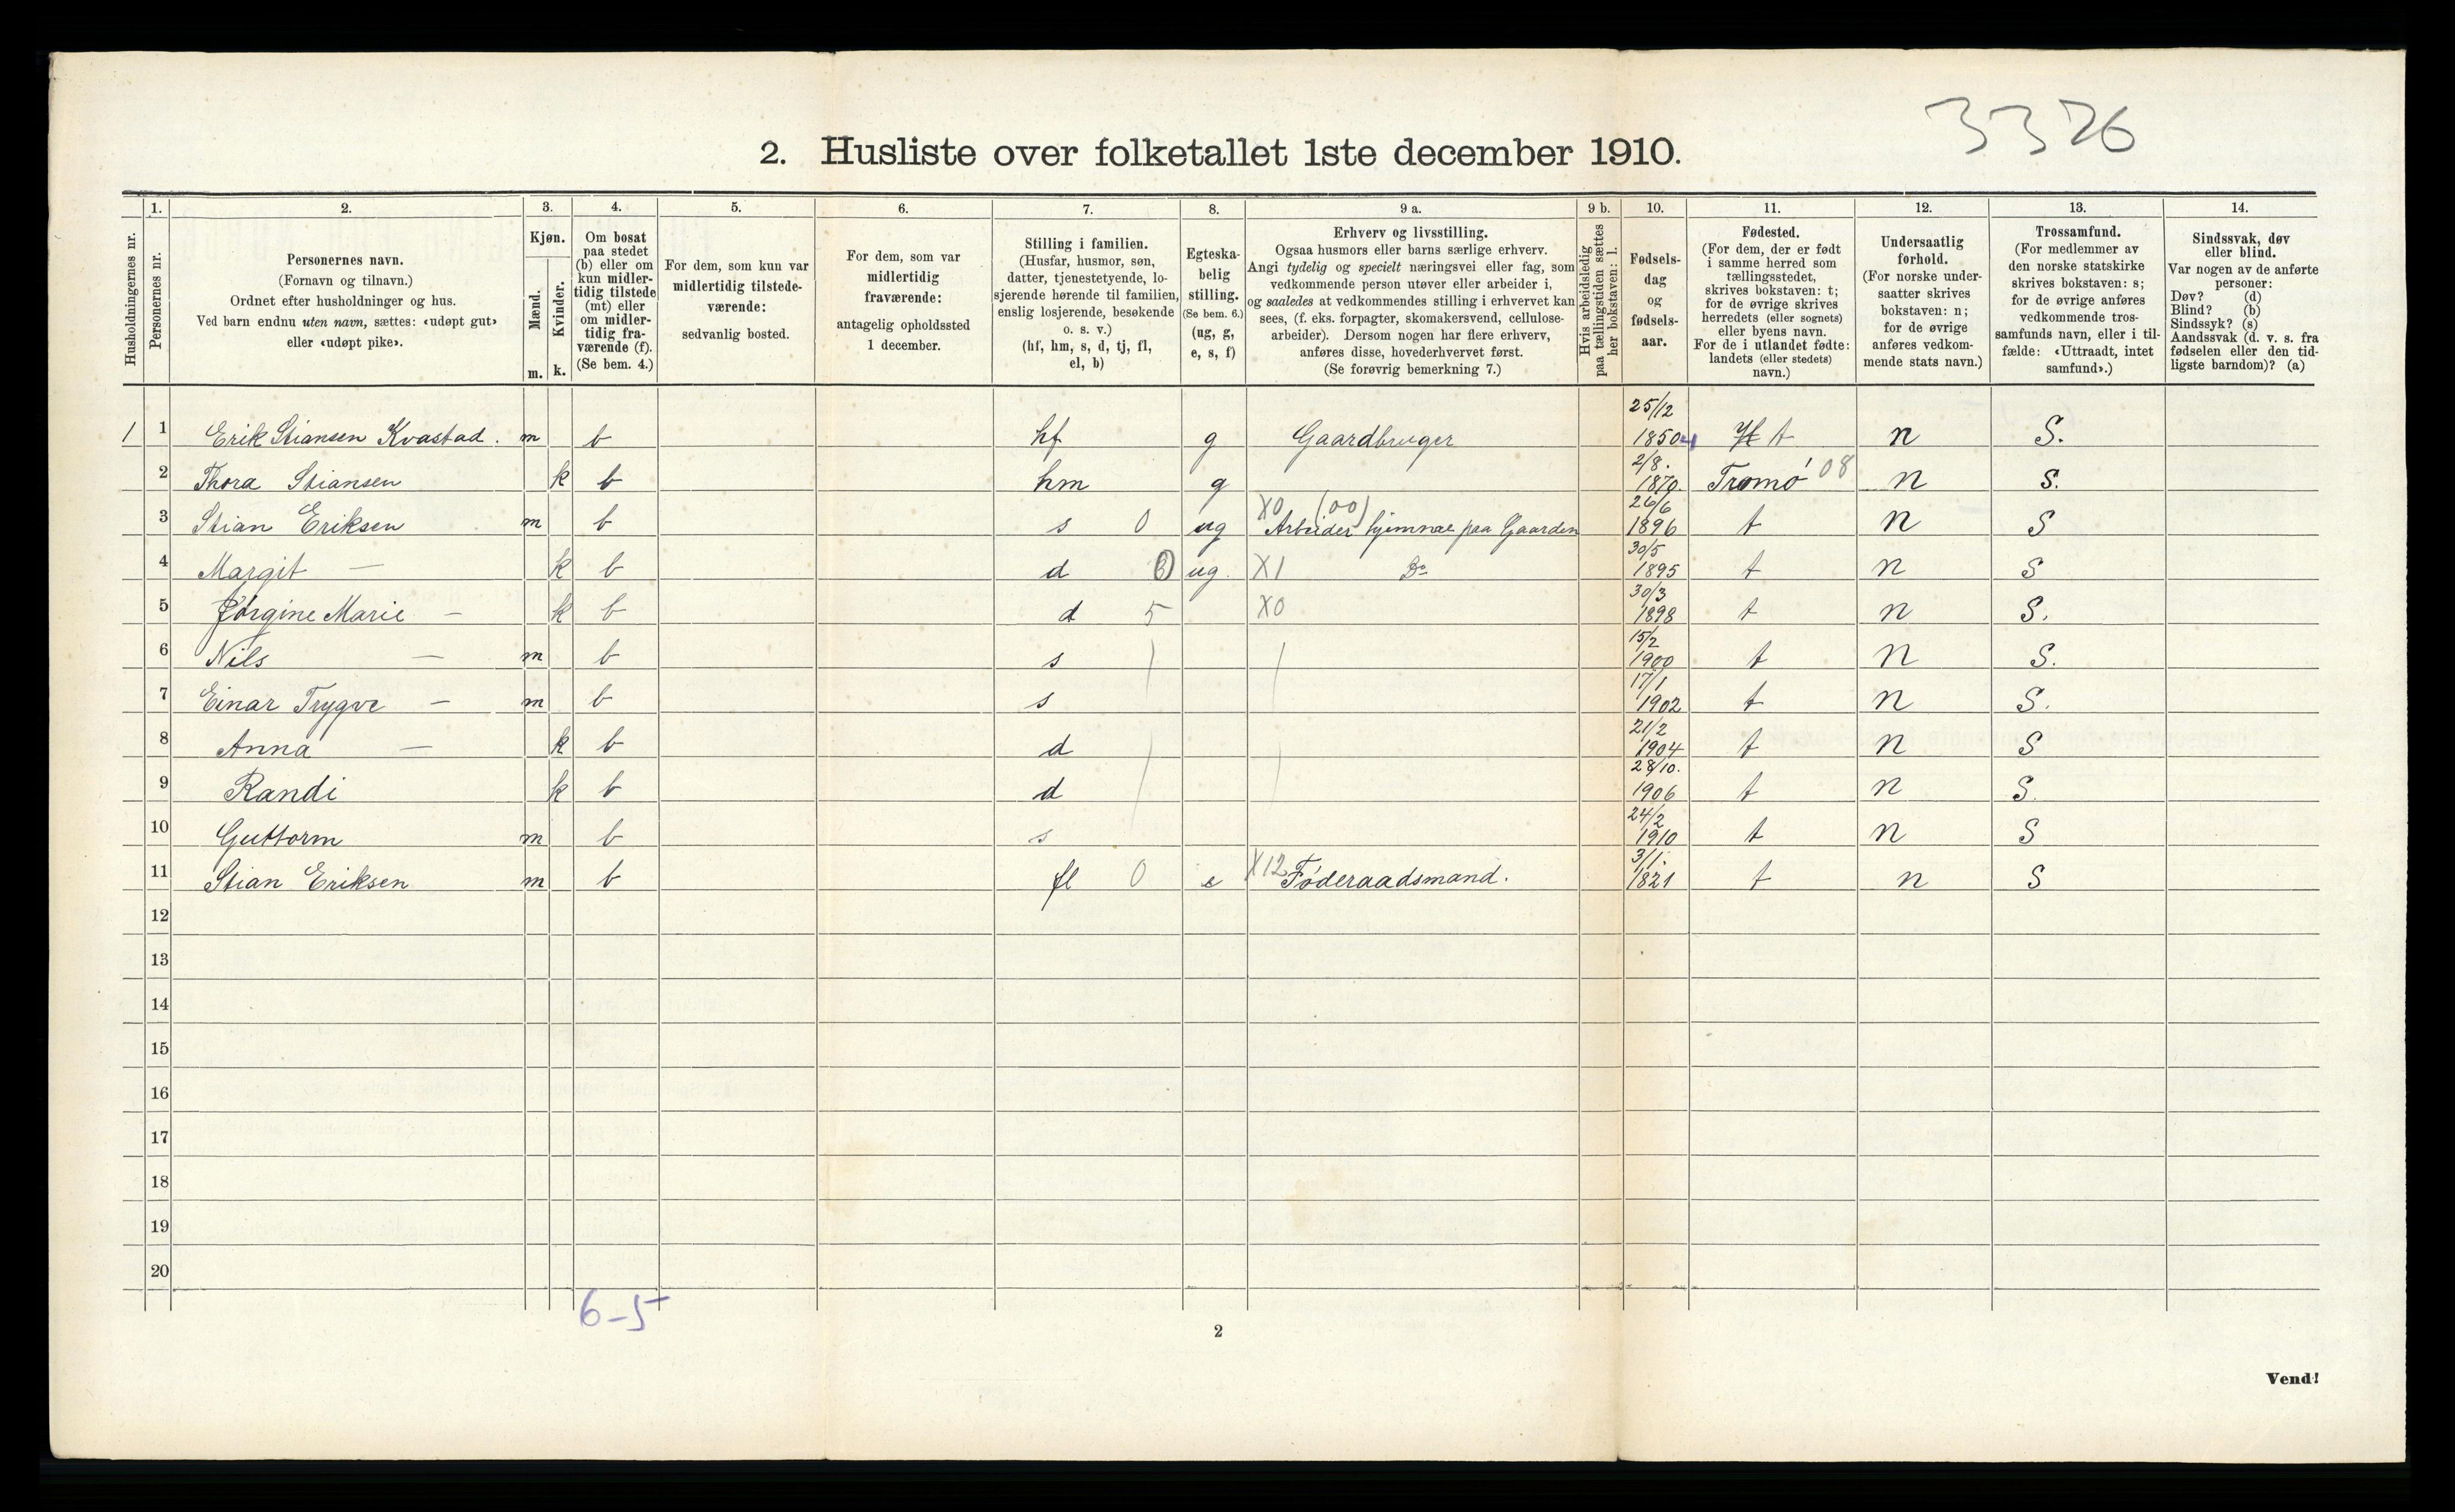 3326
2. Husliste over folketallet 1ste december 1910.
Husholdningernes nr.
1. Personernes nr.
2. Personernes navn. (Fornavn og tilnavn.) Ordnet efter husholdninger og hus. Ved barn endnu uten navn, sættes: «udøpt gut» eller «udøpt pike».
3. Kjøn. Mænd. m. Kvinder. k.
4. Om bosat paa stedet (b) eller om kun midlertidig tilstede (mt) eller om midlertidig fraværende (f). (Se bem. 4.)
5. For dem, som kun var midlertidig tilstedeværende: sedvanlig bosted.
6. For dem, som var midlertidig fraværende: antagelig opholdssted 1 december.
7. Stilling i familien. (Husfar, husmor, søn, datter, tjenestetyende, losjerende hørende til familien, enslig losjerende, besøkende o. s. v.) (hf, hm, s, d, tj, fl, el, b)
8. Egteskabelig stilling. (Se bem. 6.) (ug, g, e, s, f)
9 a. Erhverv og livsstilling. Ogsaa husmors eller barns særlige erhverv. Angi tydelig og specielt næringsvei eller fag, som vedkommende person utøver eller arbeider i, og saaledes at vedkommendes stilling i erhvervet kan sees, (f. eks. forpagter, skomakersvend, cellulosearbeider). Dersom nogen har flere erhverv, anføres disse, hovederhvervet først. (Se forøvrig bemerkning 7.)
9 b. Hvis arbeidsledig paa tællingstiden sættes her bokstaven: l.
10. Fødselsdag og fødselsaar.
11. Fødested. (For dem, der er født i samme herred som tællingsstedet, skrives bokstaven: t; for de øvrige skrives herredets (eller sognets) eller byens navn. For de i utlandet fødte: landets (eller stedets) navn.)
12. Undersaatlig forhold. (For norske undersaatter skrives bokstaven: n; for de øvrige anføres vedkommende stats navn.)
13. Trossamfund. (For medlemmer av den norske statskirke skrives bokstaven: s; for de øvrige anføres vedkommende trossamfunds navn, eller i tilfælde: «Uttraadt, intet samfund».)
14. Sindssvak, døv eller blind. Var nogen av de anførte personer: Døv? (d) Blind? (b) Sindssyk? (s) Aandssvak (d. v. s. fra fødselen eller den tidligste barndom)? (a)
1 1 Erik Stiansen Kvastad. m b hf g Gaardbruger 25/12 1850 t n S.
2 Thora Stiansen k b hm g 2/8. 1870. Tromø 08 n S.
3 Stian Eriksen m b s 0 ug X0 (00) Arbeider hjemme paa Gaarden 26/6 1896 t n S
4 Margit — k b d 0 ug. X1 Do 30/5 1895 t n S
5 Jørgine Marie — k b d 5 X0 30/3 1898 t n S.
6 Nils — m b s 15/2 1900 t n S.
7 Einar Trygve — m b s 17/1 1902 t n S.
8 Anna — k b d 21/2 1904 t n S
9 Randi k b d 28/10. 1906 t n S.
10 Guttorm m b s 24/2 1910 t n S
11 Stian Eriksen m b fl 0 e X12 Føderaadsmand. 3/1. 1821 t n S
12
13
14
15
16
17
18
19
20
6-5
2
Vend!